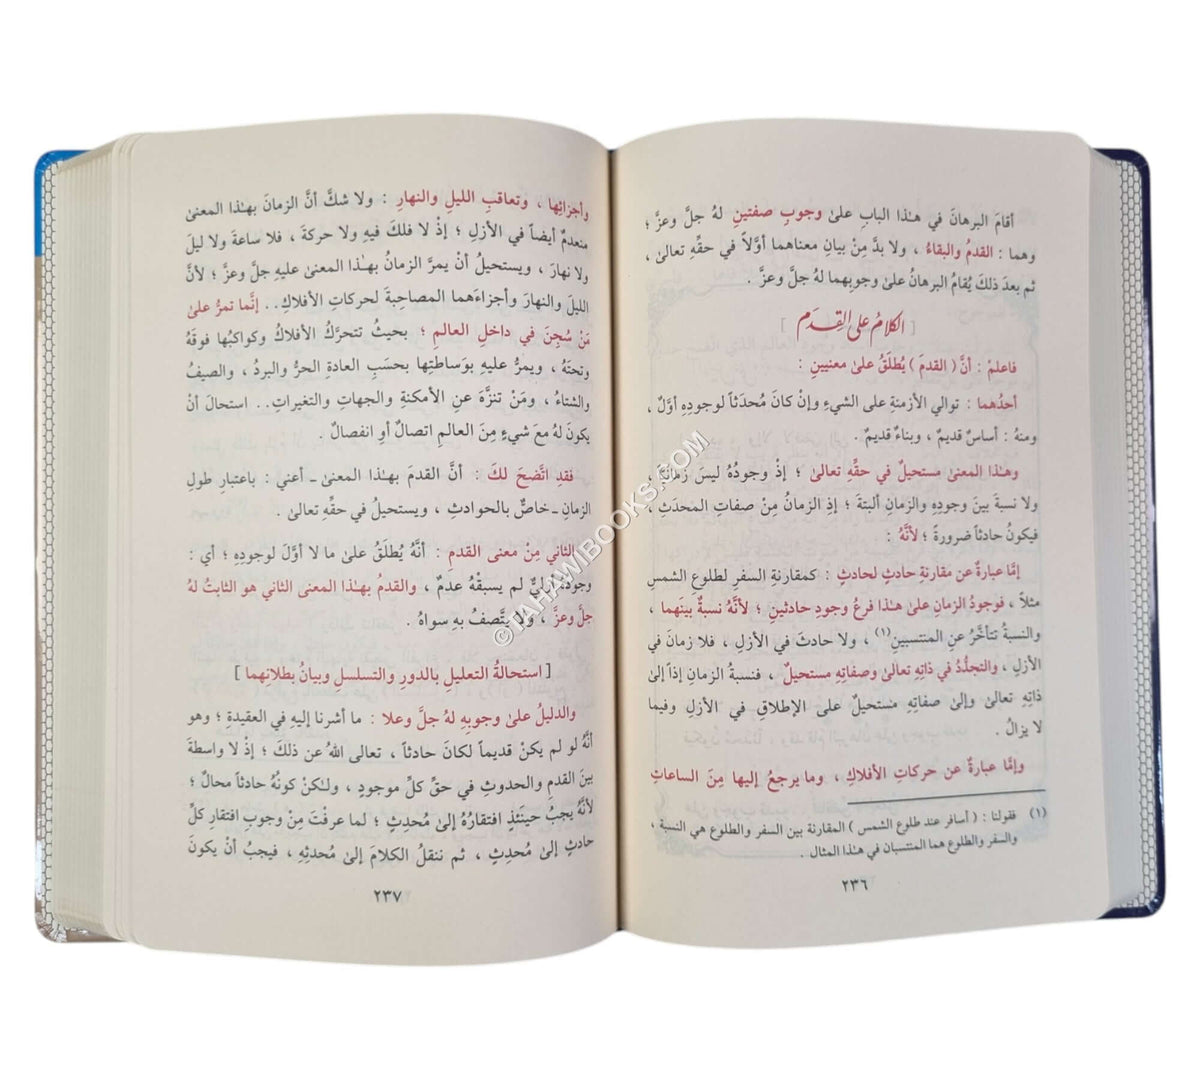 أقامَ البرهانَ في هـٰذا البابِ علىٰ وجوبِ صفتينِ لهُ جلَّ وعزَّ ؛
وهما : القدمُ والبقاءُ ، ولا بدَّ مِنْ بيانِ معناهما أوَّلاً في حقِّهِ تعالىٰ ،
ثم بعدَ ذلكَ يُقامُ البرهانُ علىٰ وجوبِهما لهُ جلَّ وعزَّ .
[ الكلامُ على القِدَم ]
فاعلمْ : أنَّ ( القدمَ ) يُطلَقُ علىٰ معنيينِ :
أحدُهما : توالي الأزمنةِ على الشيءِ وإنْ كانَ مُحدَثاً لوجودِهِ أوَّلٌ ،
ومنهُ : أساسٌ قديمٌ ، وبناءٌ قديمٌ .
وهـٰذا المعنىٰ مستحيلٌ في حقِّهِ تعالىٰ ؛ إذْ وجودُهُ ليسَ زمانيّاً ،
ولا نسبةَ بينَ وجودِهِ والزمانِ ألبتةَ ؛ إذِ الزمانُ مِنْ صفاتِ المحدَثِ ،
فيكونُ حادثاً ضرورةً ؛ لأنَّهُ :
إمَّا عبارةٌ عن مقارنةِ حادثٍ لحادثٍ : كمقارنةِ السفرِ لطلوعِ الشمسِ
مثلاً ، فوجودُ الزمانِ علىٰ هـٰذا فرعُ وجودِ حادثينِ ؛ لأنَّهُ نسبةٌ بينَهما ،
والنسبةُ تتأخَّرُ عنِ المنتسبينِ(١) ، ولا حادثَ في الأزلِ ، فلا زمانَ في
الأزلِ ، والتجدُّدُ في ذاتِهِ تعالىٰ وصفاتِهِ مستحيلٌ ، فنسبةُ الزمانِ إذاً إلىٰ
ذاتِهِ تعالىٰ وإلىٰ صفاتِهِ مستحيلٌ على الإطلاقِ في الأزلِ وفيما
لا يزالُ .
وإمَّا عبارةٌ عن حركاتِ الأفلاكِ ، وما يرجعُ إليها مِنَ الساعاتِ
(١) فقولنا : ( أسافر عند طلوع الشمس ) المقارنة بين السفر والطلوع هي النسبة ،
والسفر والطلوع هما المنتسبان في هـٰذا المثال .
٢٣٦
وأجزائِها ، وتعاقبِ الليلِ والنهارِ : ولا شكَّ أنَّ الزمانَ بهـٰذا المعنىٰ
منعدمٌ أيضاً في الأزلِ ؛ إذْ لا فلكَ فيهِ ولا حركةَ ، فلا ساعةَ ولا ليلَ
ولا نهارَ ، ويستحيلُ أنْ يمرَّ الزمانُ بهـٰذا المعنىٰ عليهِ جلَّ وعزَّ ؛ لأنَّ
الليلَ والنهارَ وأجزاءَهما المصاحِبةَ لحركاتِ الأفلاكِ . . إنَّما تمرُّ علىٰ
مَنْ سُجِنَ في داخلِ العالمِ ؛ بحيثُ تتحرَّكُ الأفلاكُ وكواكبُها فوقَهُ
وتحتَهُ ، ويمرُّ عليهِ بوَساطتِها بحسَبِ العادةِ الحرُّ والبردُ ، والصيفُ
والشتاءُ ، ومَنْ تنزَّهَ عنِ الأمكنةِ والجهاتِ والتغيراتِ . . استحالَ أنْ
يكونَ لهُ معَ شيءٍ مِنَ العالمِ اتصالٌ أوِ انفصالٌ .
فقدِ اتَّضحَ لكَ : أنَّ القدمَ بهـٰذا المعنىٰ ـ أعني : باعتبارِ طولِ
الزمانِ ـ خاصٌّ بالحوادثِ ، ويستحيلُ في حقِّهِ تعالىٰ .
الثاني مِنْ معنى القدمِ : أنَّهُ يُطلَقُ علىٰ ما لا أوَّلَ لوجودِهِ ؛ أي :
وجودُهُ أزليٌّ لم يسبقْهُ عدمٌ ، والقدمُ بهـٰذا المعنى الثاني هو الثابتُ لهُ
جلَّ وعزَّ ، ولا يتَّصفُ بهِ سواهُ .
[ استحالةُ التعليلِ بالدورِ والتسلسلِ وبيانُ بطلانِهما ]
والدليلُ علىٰ وجوبِهِ لهُ جلَّ وعلا : ما أشرنا إليهِ في العقيدةِ ؛ وهو
أنَّهُ لو لم يكنْ قديماً لكانَ حادثاً ، تعالى اللهُ عن ذلكَ ؛ إذْ لا واسطةَ
بينَ القدمِ والحدوثِ في حقِّ كلِّ موجودٍ ، ولـٰكنْ كونُهُ حادثاً محالٌ ؛
لأنَّهُ يجبُ حينَئذٍ افتقارُهُ إلىٰ مُحدِثٍ ؛ لما عرفتَ مِنْ وجوبِ افتقارِ كلِّ
حادثٍ إلىٰ مُحدِثٍ ، ثم ننقلُ الكلامَ إلىٰ مُحدِثِهِ ، فيجبُ أنْ يكونَ
٢٣٧
©TAHAWIBOOKS.COM